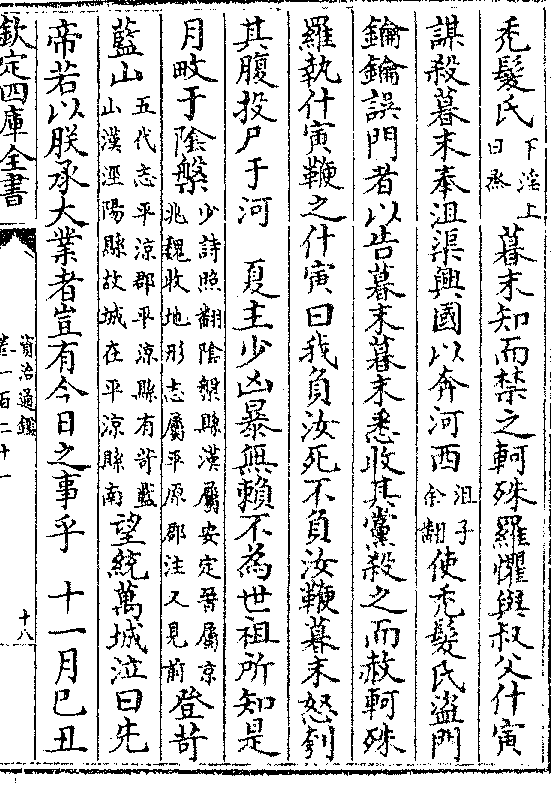 禿髮氏下淫上曰烝暮末知而禁之軻殊羅懼與叔父什寅
謀殺暮末奉沮渠興國以奔河西沮子余翻使禿髮氏盜門
鑰鑰誤門者以告暮末暮末悉收其黨殺之而赦軻殊
羅執什寅鞭之什寅曰我負汝死不負汝鞭暮末怒刳
其腹投尸于河　夏主少凶暴無賴不為世祖所知是
月畋于陰槃少詩照翻陰槃縣漢屬安定晉屬京兆魏收地形志屬平原郡注又見前登苛
藍山五代志平涼郡平涼縣有苛藍山漢涇陽縣故城在平涼縣南望統萬城泣曰先
帝若以朕承大業者豈有今日之事乎　十一月己丑
欽定四庫全書
資治通鑑
卷一百二十一
十八